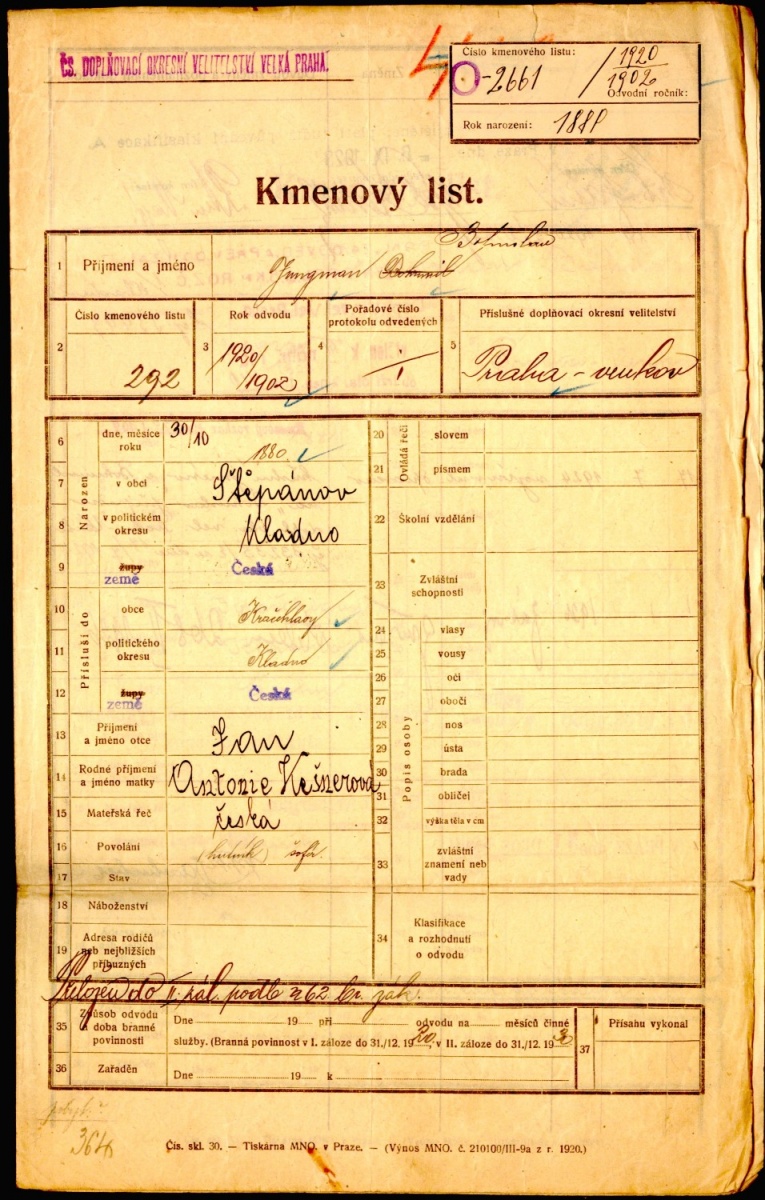 ČS. DOPLŇOVACÍ OKRESNÍ VELITELSTVÍ VELKÁ PRAHA.
Číslo kmenového listu:
O-2661 / 1920
1902
Odvodní ročník:
Rok narození: 1880
Kmenový list.
Bohuslav
1 Příjmení a jméno Jungman Bohumil
Číslo kmenového listu
2 292
Rok odvodu
3 1920/
1902
Pořadové číslo
protokolu odvedených
4
Příslušné doplňovací okresní velitelství
5 Praha-venkov
Narozen
6 dne, měsíce
roku 30/10 1880.
7 v obci Štěpánov
8 v politickém
okresu Kladno
9 župy
země Česká
Přísluší do
10 obce
11 politického
okresu Kladno
12 župy
země Česká
13 Příjmení
a jméno otce Jan
14 Rodné příjmení
a jméno matky Antonie Kešnerová
15 Mateřská řeč česká
16 Povolání (hutník) šofér
17 Stav
18 Náboženství
19 Adresa rodičů
neb nejbližších
příbuzných
Ovládá řeči
20 slovem
21 písmem
22 Školní vzdělání
23 Zvláštní
schopnosti
Popis osoby
24 vlasy
25 vousy
26 oči
27 obočí
28 nos
29 ústa
30 brada
31 obličej
32 výška těla v cm
33 zvláštní
znamení neb
vady
34 Klasifikace
a rozhodnutí
o odvodu
Přeložen do II. zál. podle § 62 br. zák.
35 Způsob odvodu
a doba branné
povinnosti
Dne 19 při odvodu na měsíců činné
služby. (Branná povinnost v I. záloze do 31./12. 1920, v II. záloze do 31./12. 1930
36 Zařaděn Dne 19 k
37 Přísahu vykonal
364
Čís. skl. 30. — Tiskárna MNO. v Praze. — (Výnos MNO. č. 210100/III-9a z r. 1920.)